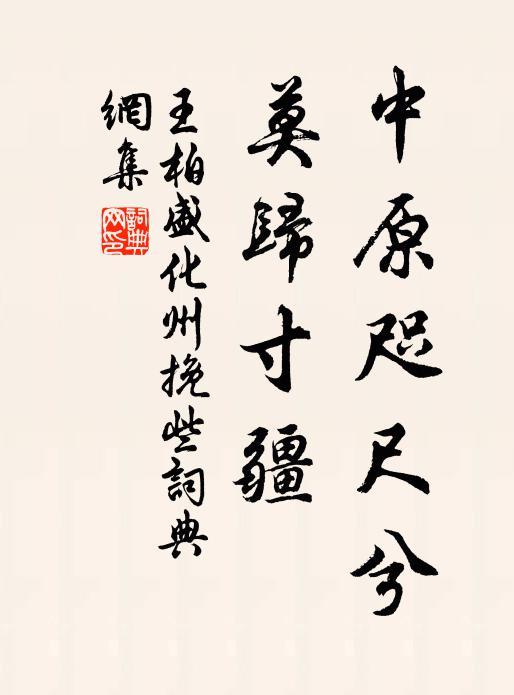 中原咫尺兮
莫歸寸疆
王柏盛化州挽些詞典
網集
詞典網印